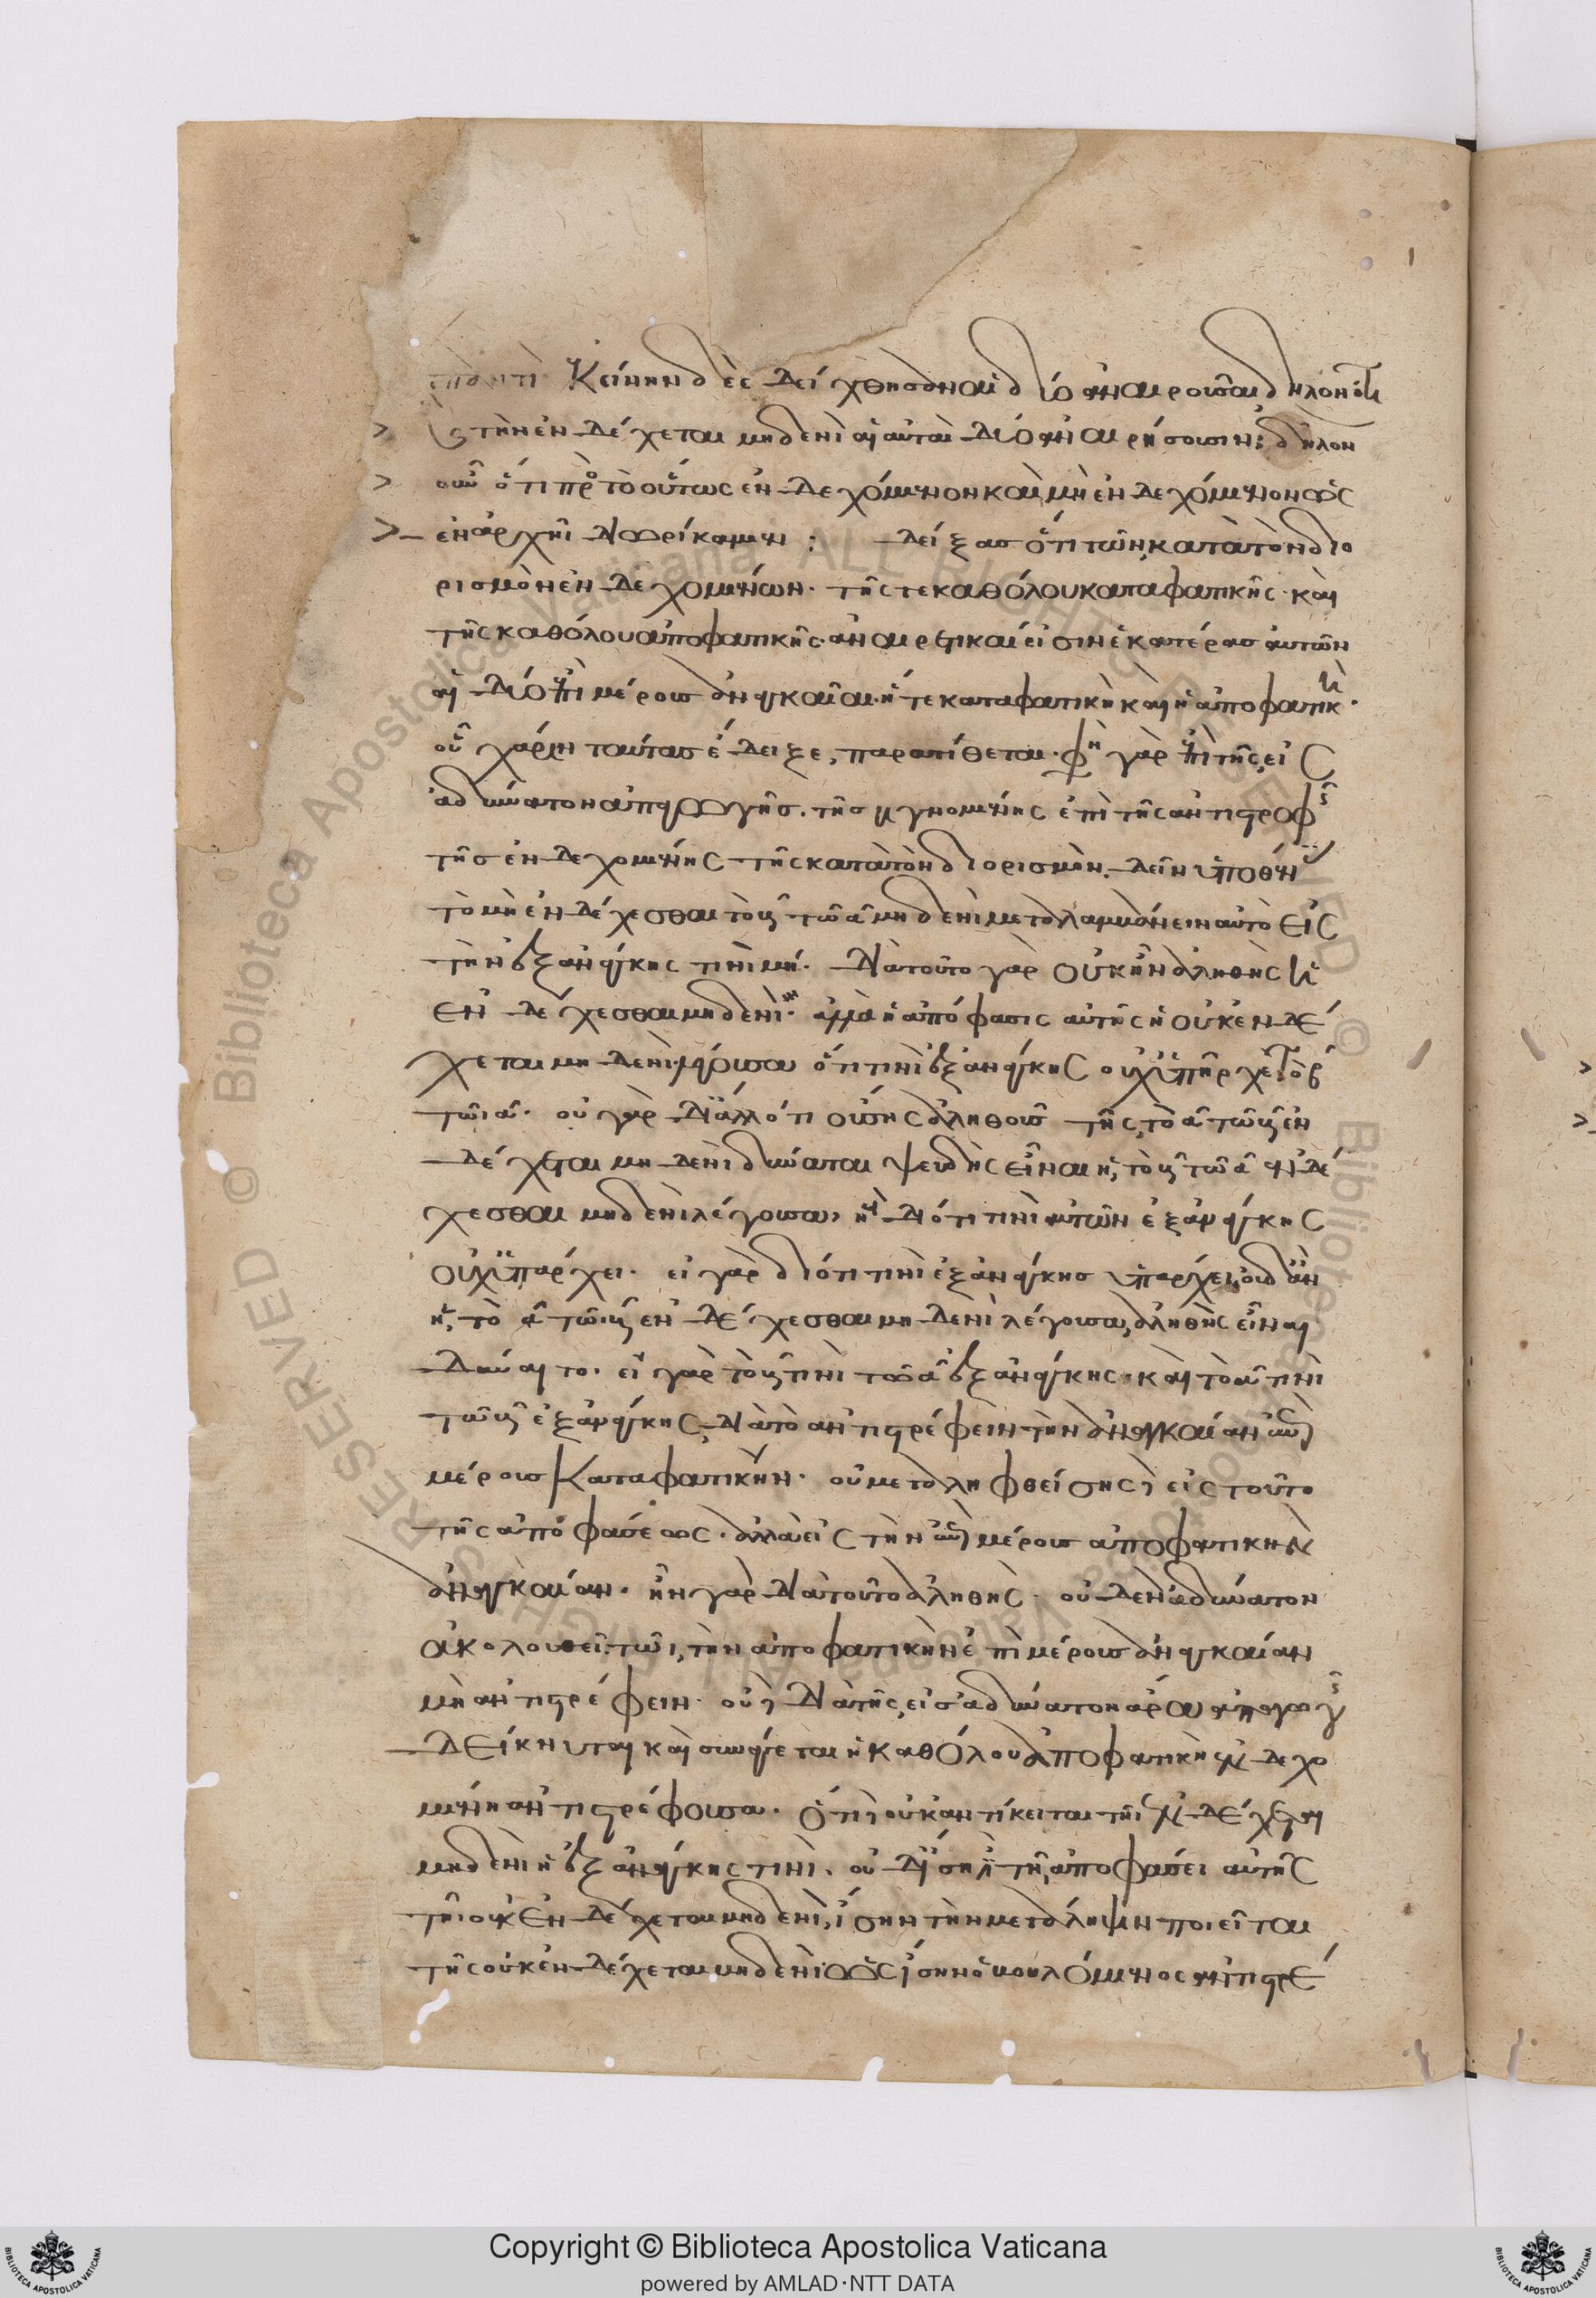 κείνην δειχθήσονται δύο ἀναιροῦσαι δηλονότι
τὴν ἐνδέχεται μηδενὶ αἱ αὐταὶ δύο ἀναιρήσουσιν: δῆλον
οὖν ὅτι πρὸς τὸ οὕτως ἐνδεχόμενον καὶ μὴ ἐνδεχόμενον ὡς
ἐν ἀρχῆι διωρίκαμεν : δείξας ὅτι τῶν κατὰ τὸν διο
ρισμὸν ἐνδεχομένων· τῆς τε καθόλου καταφατικῆς· καὶ
τῆς καθόλου ἀποφατικῆς· ἀναιρετικαί εἰσιν ἑκατέρας αὐτῶν
αἱ δύο ἐπὶ μέρους ἀναγκαῖαι· ἥ τε καταφατικὴ καὶ ἡ ἀποφατικὴ·
οὗ χάριν ταύτας ἔδειξε, παρατίθεται· φη γὰρ ἐπὶ τῆς εἰς
ἀδύνατον ἀπαγωγῆς· τῆς γιγνομένης ἐπὶ τῆς ἀντιστροφῆς
τῆς ἐνδεχομένης τῆς κατὰ τὸν διορισμὸν· δεῖν ὑποθέντας
τὸ μὴ ἐνδέχεσθαι τὸ β τῶ α μηδενὶ μεταλαμβάνειν αὐτὸ εἰς
τὴν ἐξ ἀνάγκης τινὶ μή· διὰ τοῦτο γὰρ οὐκ ἦν ἀληθὴς ἡ
ἐνδέχεσθαι μηδενὶ· ἀλλὰ ἡ ἀπόφασις αὐτῆς ἡ οὐκ ἐνδέ
χεται μηδενὶ λέγουσα ὅτι τινὶ ἐξ ἀνάγκης οὐχ ὑπῆρχε τὸ β
τῶι α· οὐ γὰρ δι' ἄλλό τι οὔσης ἀληθοῦς τῆς τὸ α τῶ β ἐν
δέχεται μηδενὶ δύναται ψευδὴς εἶναι ἡ τὸ β τῶ α ἐνδέ
χεσθαι μηδενὶ λέγουσα, ἢ διότι τινὶ αὐτῶν ἐξ ἀνάγκης
οὐχ ὑπάρχει· εἰ γὰρ διότι τινὶ ἐξ ἀνάγκης ὑπάρχει, οὐδ' ἂν
ἡ τὸ α τῶι β ἐνδέχεσθαι μηδενὶ λέγουσα, ἀληθὴς εἶναι
δύναιτο· εἰ γὰρ τὸ β τινὶ τῶ α ἐξ ἀνάγκης· καὶ τὸ α τινὶ
τῶ β ἐξ ἀνάγκης διὰ τὸ ἀντιστρέφειν τὴν ἀναγκαίαν ἐπὶ
μέρους καταφατικήν· οὐ μεταληφθείσης δὲ εἰς τοῦτο
τῆς ἀποφάσεως· ἀλλὰ εἰς τὴν ἐπὶ μέρους ἀποφατικὴν
ἀναγκαίαν· ἦν γὰρ διὰ τοῦτο ἀληθὴς· οὐδὲν ἀδύνατον
ἀκολουθεῖ, τῶι τὴν ἀποφατικὴν ἐπὶ μέρους ἀναγκαίαν
μὴ ἀντιστρέφειν· οὐ διὰ τῆς εἰς ἀδύνατον ἄρα ἀπαγωγῆς
δείκνυται καὶ συνάγεται ἡ καθόλου ἀποφατικὴ ἐνδεχο
μένη ἀντιστρέφουσα· ὅτι δὲ οὐκ ἀντίκειται τῆι ἐνδέχεται
μηδενὶ ἡ ἐξ ἀνάγκης τινὶ· οὐδ' ἴση ἐστὶ τῆι ἀποφάσει αὐτῆς
τῆι οὐκ ἐνδέχεται μηδενὶ, ἴσην τὴν μετάληψιν ποιεῖται
τῆς οὐκ ἐνδέχεται μηδενὶ ὡς ἴσην ὁ βουλόμενος ἀντιστρέ
Copyright © Biblioteca Apostolica Vaticana
powered by AMLAD·NTT DATA